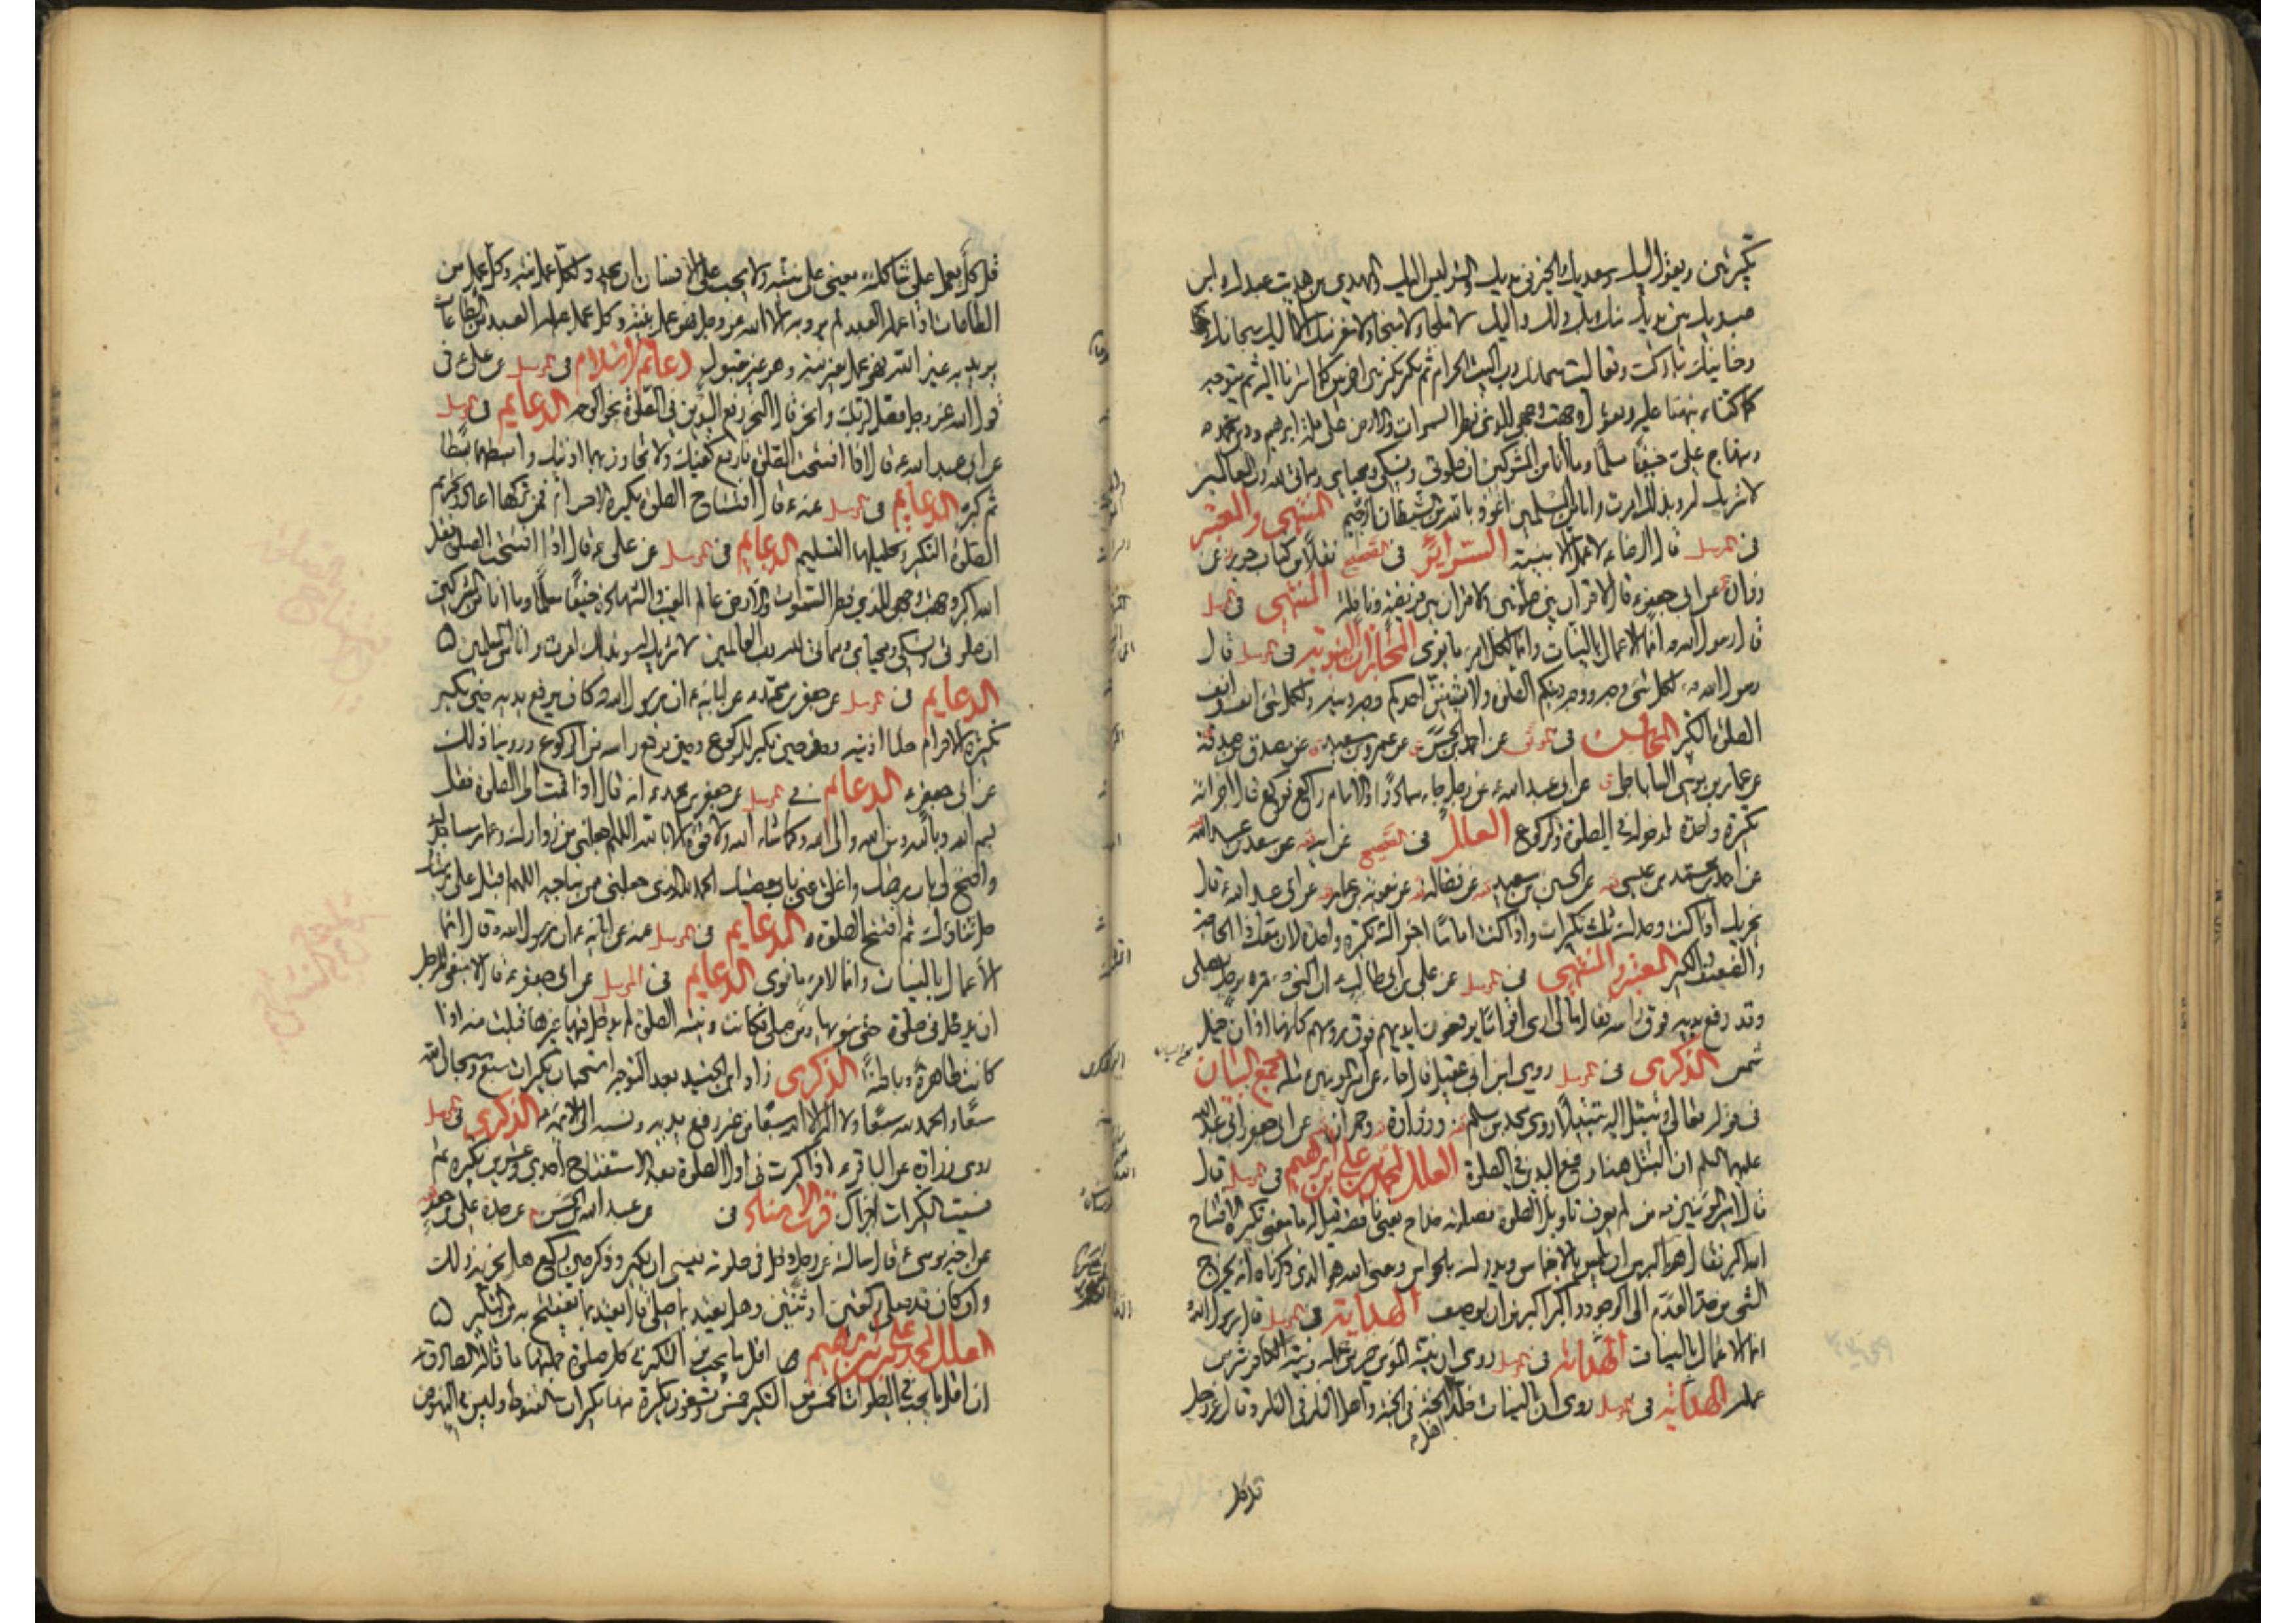 تكبيرتين ويقول لبيك وسعديك والخير في يديك والشر ليس اليك والمهدي من هديت عبدك وابن
عبديك بين يديك منك وبك ولك واليك لا ملجا ولا منجا ولا مفر منك الا اليك سبحانك
وحنانيك تباركت وتعاليت سبحانك رب البيت الحرام ثم يكبر تكبيرتين اخريين كما اشرنا اليه ثم يتوجه
كما كنا نبهنا عليه ويقول وجهت وجهي للذي فطر السموات والارض على ملة ابرهيم ودين محمد ص
ومنهاج علي حنيفا مسلما وما انا من المشركين ان صلوتي ونسكي ومحياي ومماتي لله رب العالمين
لا شريك له وبذلك امرت وانا من المسلمين اعوذ بالله من الشيطان الرجيم المنتهى والمعتبر
في المرسل قال الرضا ع لا عمل الا بنية السرائر في الصحيح نقلا من كتاب حريز عن
زرارة عن ابي جعفر ع قال لا قران بين صلوتين لا قران بين فريضة ونافلة المنتهى في المرسل
قال رسول الله ص انما الاعمال بالنيات وانما لكل امرء ما نوى المجازات النبوية في المرسل قال
رسول الله ص لكل شيء وجه ووجه دينكم الصلوة ولا يشينن احدكم وجه دينه ولكل شيء انف وانف
الصلوة التكبير المحاسن في الموثق عن احمد بن الحسن عن عمرو بن سعيد عن مصدق بن صدقة
عن عمار بن موسى الساباطي عن ابي عبد الله ع عن رجل جاء مبادرا والامام راكع فركع قال اجزاته
تكبيرة واحدة لدخوله في الصلوة والركوع العلل في الصحيح عن ابيه عن سعد بن عبد الله
عن احمد بن محمد بن عيسى عن الحسين بن سعيد عن فضالة عن معوية بن عمار عن ابي عبد الله ع قال
يجزيك اذا كنت وحدك ثلث تكبيرات واذا كنت اماما اجزاك تكبيرة واحدة لان معك ذا الحاجة
والضعيف والكبير المعتبر والمنتهى في المرسل عن علي بن ابي طالب ع ان النبي ص مر برجل يصلي
وقد رفع يديه فوق راسه فقال ما لي ارى اقواما يرفعون ايديهم فوق رؤسهم كانها اذان خيل
شمس الذكرى في المرسل روى ابن ابي عقيل قال جاء عن امير المؤمنين ع مثله مجمع البيان
في قوله تعالى وتبتل اليه تبتيلا روى محمد بن مسلم وزرارة وحمران عن ابي جعفر وابي عبد الله
عليهما السلم ان التبتل هنا رفع اليدين في الصلوة العلل لمحمد بن علي بن ابرهيم في المرسل قال
قال امير المؤمنين ع من لم يعرف تاويل الصلوة فصلوته خداج يعني ناقصة قيل له ما معنى تكبيرة الافتتاح
الله اكبر فقال هو اكبر من ان يلمس بالاخماس ويدرك بالحواس ومعنى الله هو الذي ذكرناه انه يخرج
الشيء من حد العدم الى الوجود واكبر اكبر من ان يوصف الهداية في المرسل قال رسول الله ص
انما الاعمال بالنيات الهداية في المرسل روي ان نية المؤمن خير من عمله ونية الكافر شر من
عمله الهداية في المرسل روي ان بالنيات خلد اهل الجنة في الجنة واهل النار في النار وقال عز وجل
قل كل
قل كل يعمل على شاكلته يعني على نيته ولا يجب على الانسان ان يجدد لكل عمل نية وكل عمل من
الطاعات اذا عمله العبد لم يرد به الا الله عز وجل فهو عمل بنية وكل عمل عمله العبد من الطاعات
يريد به غير الله فهو عمل بغير نية وهو غير مقبول دعائم الاسلام في المرسل عن علي ع في
قول الله عز وجل فصل لربك وانحر قال النحر رفع اليدين في الصلوة نحو الوجه الدعايم في المرسل
عن ابي عبد الله ع قال اذا افتتحت الصلوة فارفع كفيك ولا تجاوز بهما اذنيك وابسطهما بسطا
ثم كبر الدعايم في المرسل عنه ع قال افتتاح الصلوة تكبيرة الاحرام فمن تركها اعاد وتحريم
الصلوة التكبير وتحليلها التسليم الدعايم في المرسل عن علي ع قال اذا افتتحت الصلوة فقل
الله اكبر وجهت وجهي للذي فطر السموات والارض عالم الغيب والشهادة حنيفا مسلما وما انا من المشركين
ان صلوتي ونسكي ومحياي ومماتي لله رب العالمين لا شريك له وبذلك امرت وانا من المسلمين
الدعايم في المرسل عن جعفر بن محمد ع عن ابائه ع ان رسول الله ص كان يرفع يديه حين يكبر
تكبيرة الاحرام حذاء اذنيه وحين يكبر للركوع وحين يرفع راسه من الركوع وروينا ذلك
عن ابي جعفر ع الدعايم في المرسل عن جعفر بن محمد ع انه قال اذا قمت الى الصلوة فقل
بسم الله وبالله ومن الله والى الله وكما شاء الله ولا قوة الا بالله اللهم اجعلني من زوارك وعمار مساجدك
وافتح لي باب رحمتك واغلق عني باب معصيتك الحمد لله الذي جعلني ممن يناجيه اللهم اقبل علي بوجهك
جل ثناؤك ثم افتتح الصلوة الدعايم في المرسل عنه عن ابائه ع ان رسول الله ص قال انما
الاعمال بالنيات وانما لامرء ما نوى الدعايم في المرسل عن ابي جعفر ع قال لا ينبغي للرجل
ان يدخل في صلوة حتى ينويها ومن صلى فكانت نيته الصلوة لم يدخل فيها غيرها قبلت منه اذا
كانت ظاهرة وباطنة الذكرى زاد ابن الجنيد بعد التوجه استحباب تكبيرات سبع وسبحان الله
سبعا والحمد لله سبعا ولا اله الا الله سبعا من غير رفع يديه ونسبه الى الائمة ع الذكرى في المرسل
روى زرارة عن الباقر ع اذا كبرت في اول الصلوة بعد الاستفتاح احدى وعشرين تكبيرة ثم
نسيت التكبيرات اجزاك قرب الاسناد في عن عبد الله بن الحسن عن جده علي بن جعفر
عن اخيه موسى ع قال سالته عن رجل دخل في صلوته فنسي ان يكبر وذكر حين ركع هل يجزيه ذلك
وان كان قد صلى ركعتين او ثنتين وهل يعتد بما صلى قال يعتد بما يفتتح به من التكبير
العلل لمحمد بن علي بن ابرهيم ص اقل ما يجب من التكبير في كل صلوة جملتها ما قاله الصادق ع
ان اقل ما يجب في الصلوات الخمس من التكبير خمس وتسعون تكبيرة منها تكبيرات القنوط وليس في النهوض